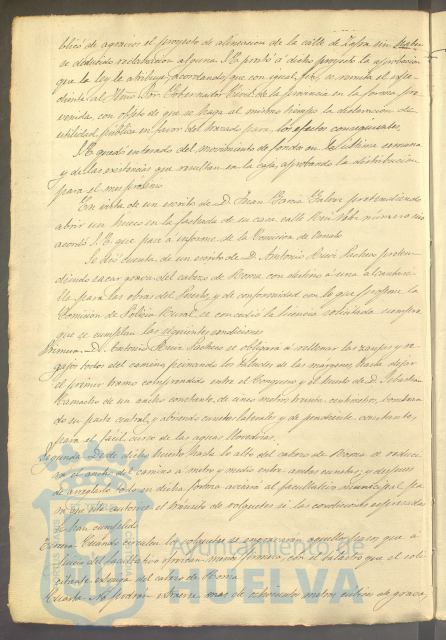 blico de agravios el proyecto de alineacion de la calle de Zafra sin haber
se deducido reclamacion alguna S.E. prestó á dicho proyecto la aprobacion
que la ley le atribuye, acordando, que con igual fin, se remita el espe
diente al Sor. Gobernador Civil de la provincia en la forma pre
venida, con objeto de que se haga al mismo tiempo la declaracion de
utilidad pública en favor del trazado para los efectos consiguientes.
S.E. quedó enterado del movimiento de fondos en la última semana
y de las existencias que resultan en la caja, aprobando la distribucion
para el mes próximo.
En vista de un escrito de D. Juan Garcia pretendiendo
abrir un hueco en la fachada de su casa calle número seis
acordó S.E. que pase á informe de la Comision de Ornato.
Se dió cuenta de un escrito de D. Antonio Ruiz Pacheco preten
diendo sacar grava del cabezo de Roma con destino á una alcantari
lla para las obras del Puerto, y de conformidad con lo que propone la
Comision de Policia Rural se concedió la licencia solicitada siempre
que se cumplan las siguientes condiciones
Primera. D. Antonio Ruiz Pacheco se obligará á rellenar las zanjas y re
gajos todos del camino peinando los taludes de las márgenes, hasta dejar
el primer tramo comprendido entre el Conquero y el huerto de D. Sebastian
Camacho de un ancho constante de cinco metros, treinta centímetros, bombean
do su parte central, y abriendo cunetas laterales y de pendiente constante,
para el fácil curso de las aguas llovedizas.
Segunda. Desde dicho huerto hasta lo alto del cabezo de Roma se reduci
rá el ancho del camino á metro y medio entre ambas cunetas; y despues
de arreglado todo en dicha forma avisará al facultativo municipal pa
ra que este autorice el tránsito de volquetes si las condiciones espresadas
se han cumplido
Tercera. Cuando circulen los volquetes se engravarán aquellos pasos que á
juicio del facultativo ofrezcan menos firmeza, con el balastro que el soli
citante estraiga del cabezo de Roma
Cuarta. No podrán estraerse mas de metros cúbicos de grava,
Ayuntamiento de
HUELVA